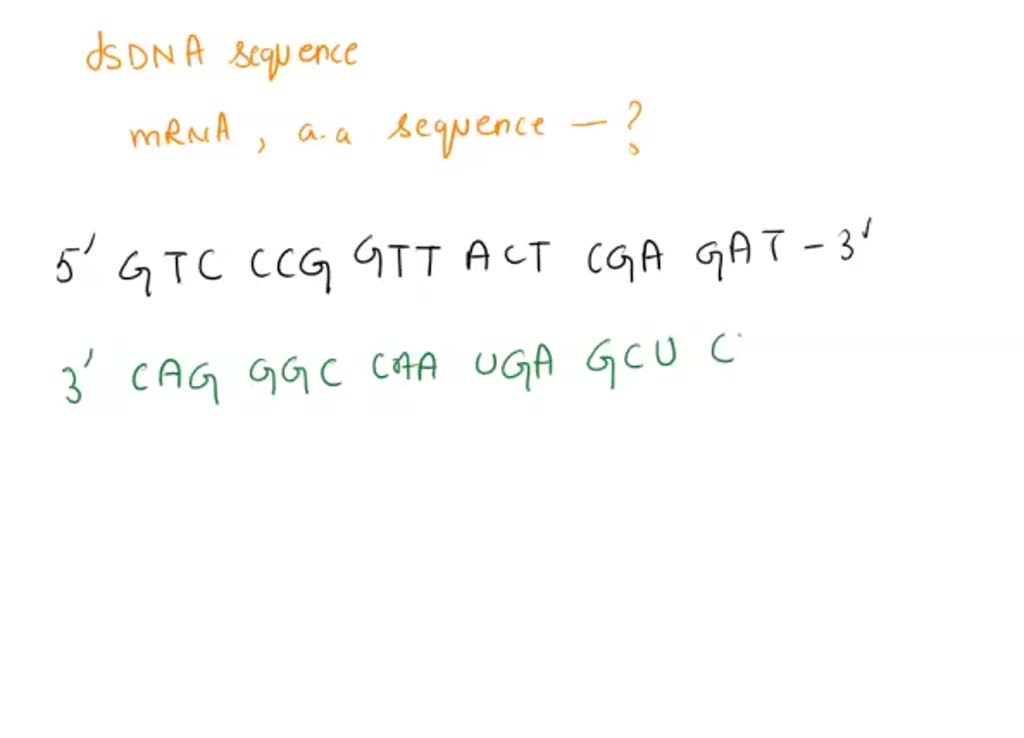 dsDNA sequence
mRNA, a.a sequence - ?
5' GTC CCG GTT ACT CGA GAT - 3'
3' CAG GGC CAA UGA GCU C